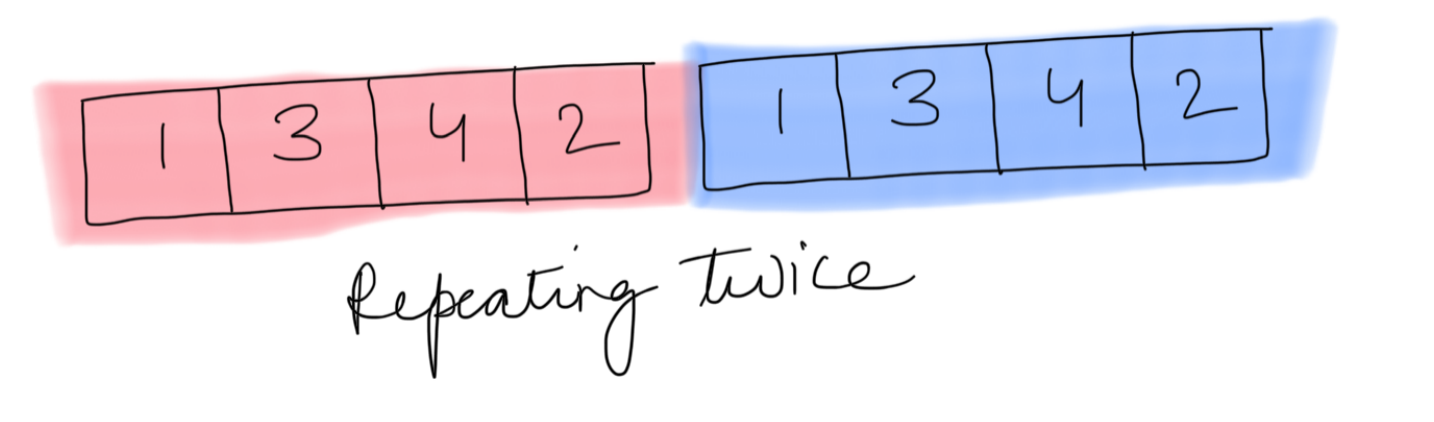 1 3 4 2 1 3 4 2
Repeating twice